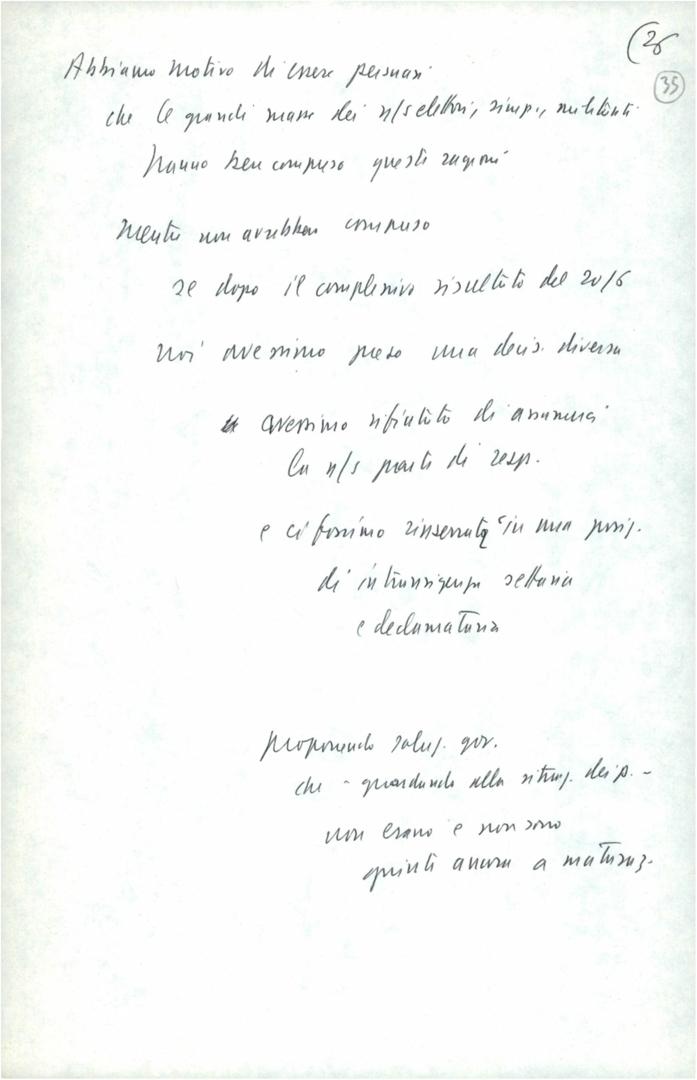 (26
35
Abbiamo motivo di essere persuasi
che le grandi masse dei n/s elettori, simp., militanti
hanno ben compreso queste ragioni
mentre non avrebbero compreso
se dopo il complessivo risultato del 20/6
noi avessimo preso una decis. diversa
avessimo rifiutato di assumerci
la n/s parte di resp.
e ci fossimo rinserrati in una posiz.
di intransigenza settaria
e declamatoria
proponendo soluz. gov.
che - guardando alla situaz. dei p. -
non erano e non sono
giunti ancora a maturaz.